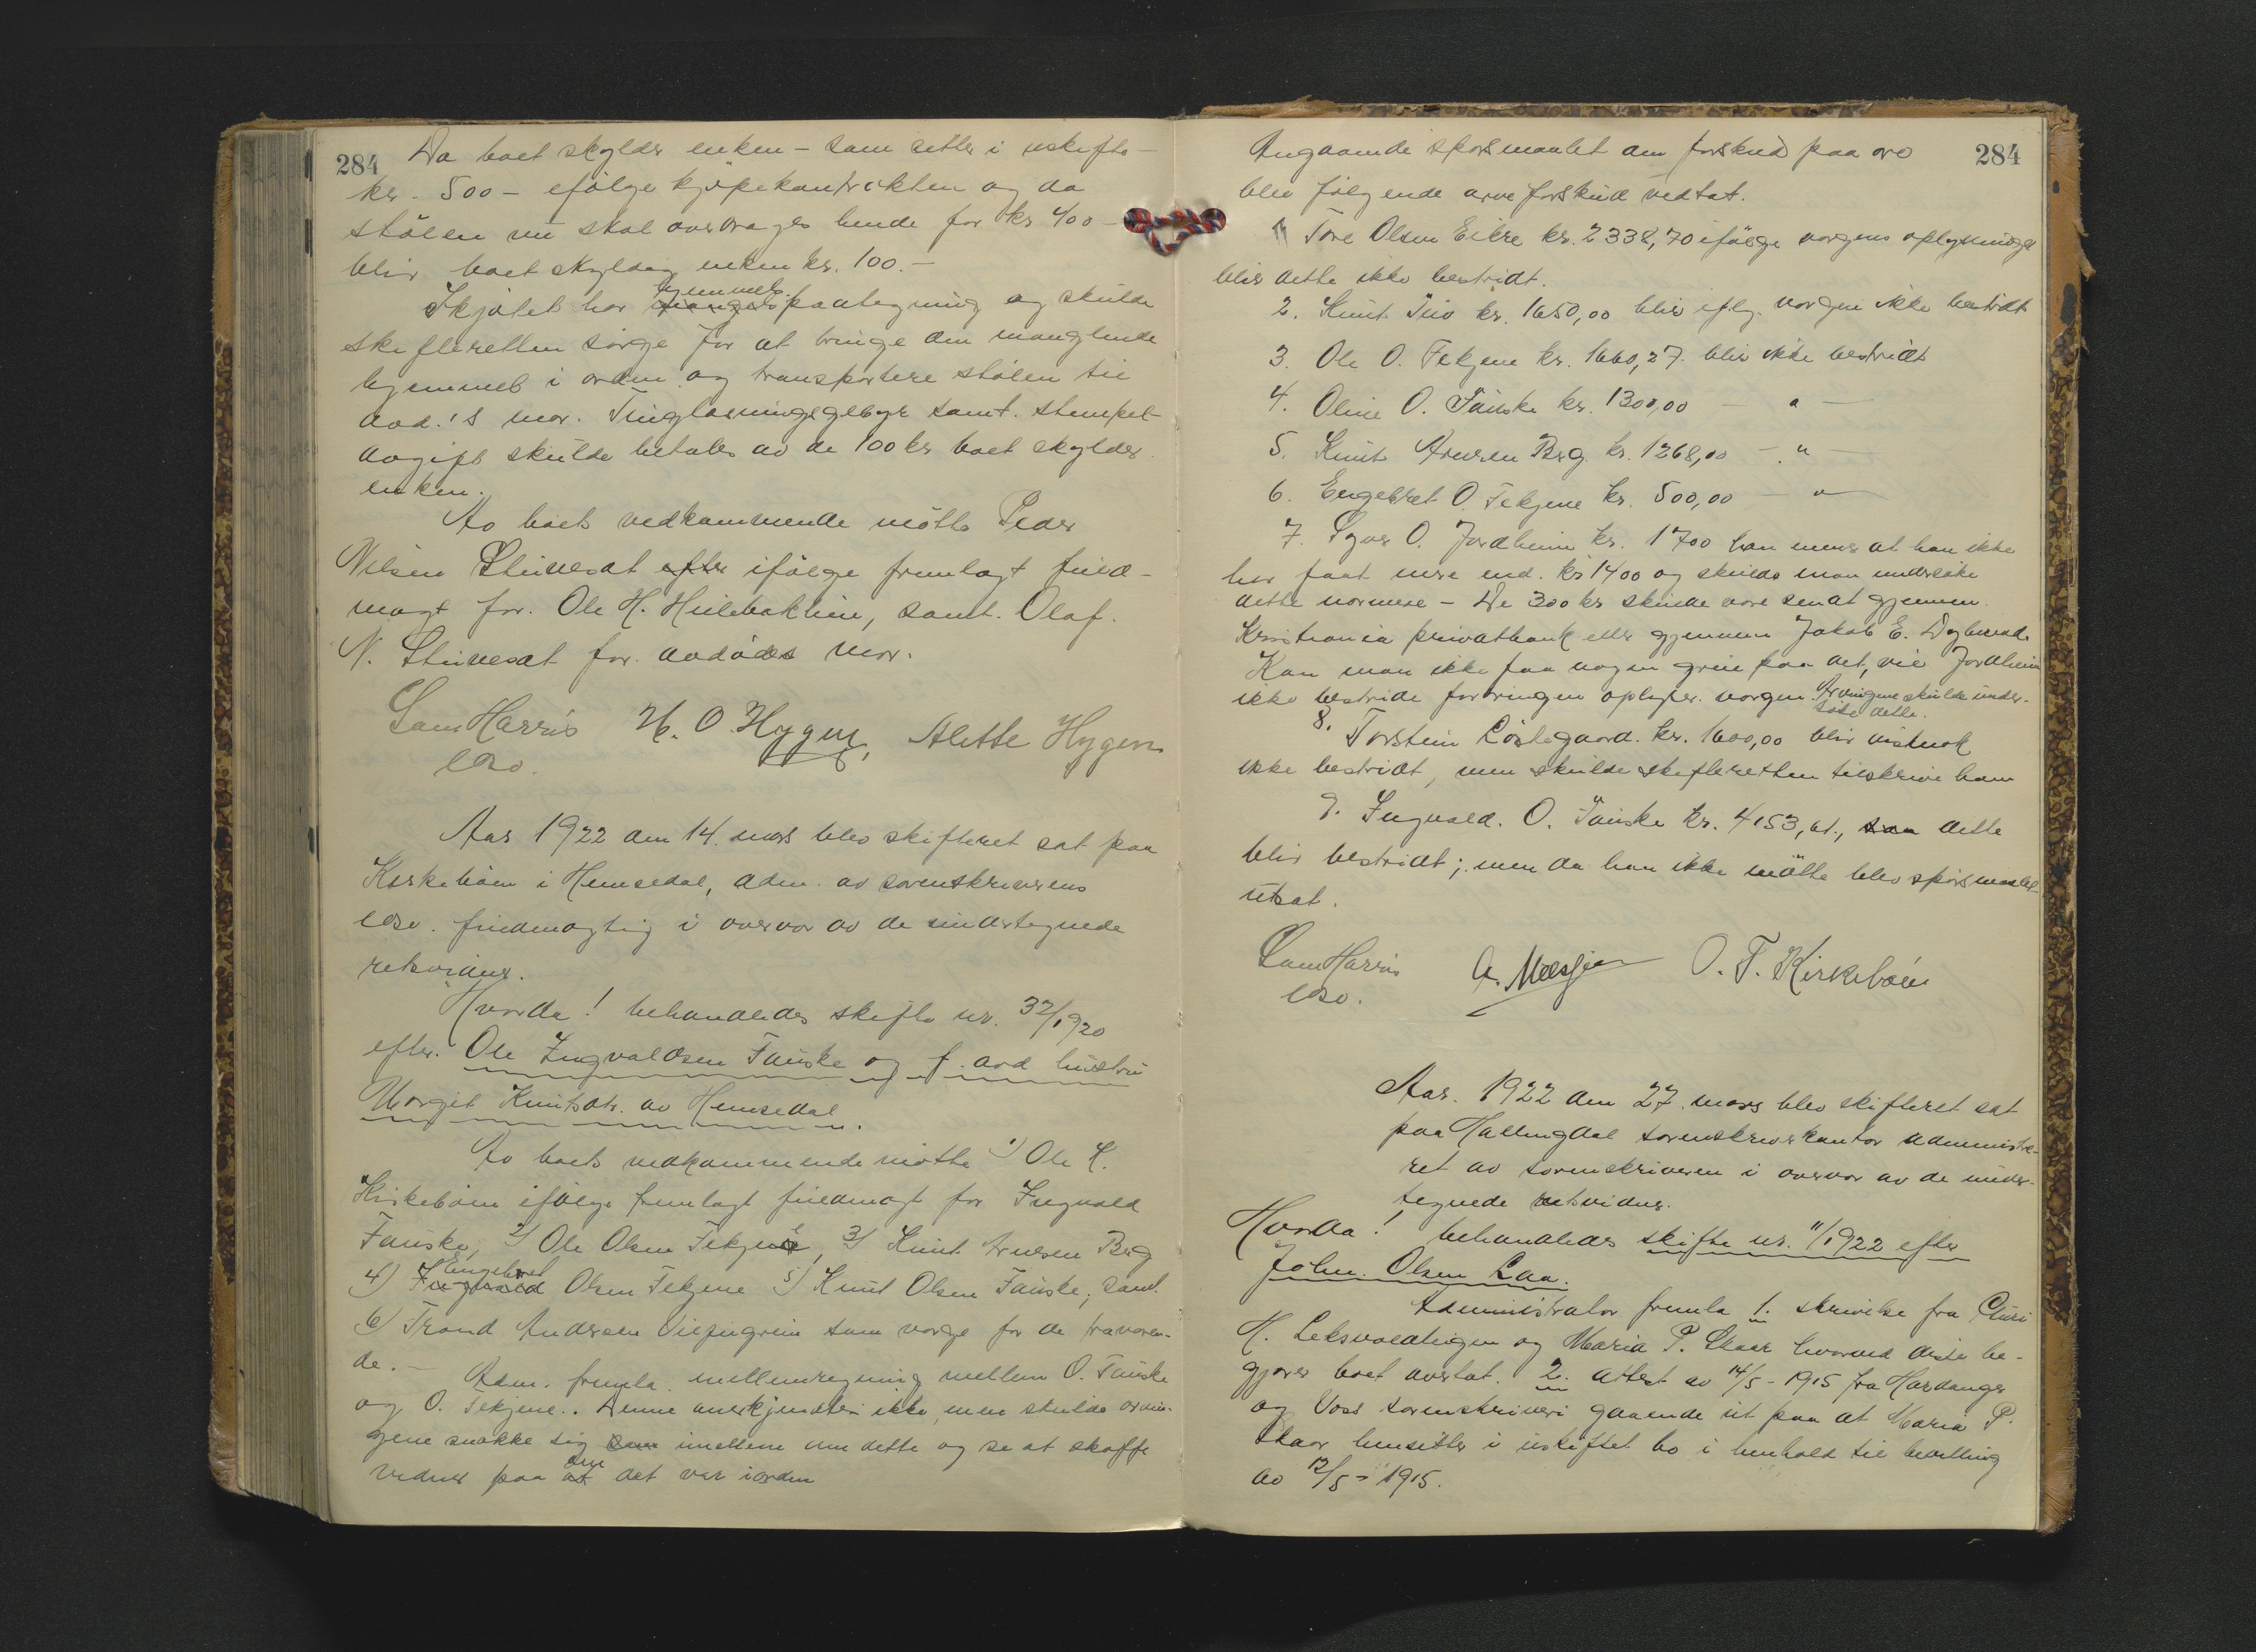 284 Da boet skylder enken – som sitter i uskifte –
kr. 500 – ifölge kjöpekontrakten og da
stölen nu skal overdrages hende for kr 400 –
blir boet skyldig enken kr. 100. –
Skjötet har hjemmels mangels paategning og skulde
skifteretten sörge for at bringe den manglende
hjemmel i orden og transportere stölen til
avd.'s mor. Tinglæsningsgebyr samt stempel-
avgift skulde betales av de 100 kr boet skylder
enken.
Av boets vedkommende mötte Peder
Nilsen efter ifölge fremlagt fuld-
magt for Ole H. Hulebakhin, samt Olaf
N. for avdödes mor.
Sam Harris H. O. Hygen, Alette Hygen
edsv.
Aar 1922 den 14. mars blev skifteret sat paa
Kirkebøen i Hemsedal, adm. av sorenskriverens
edsv. fuldmægtig i overvær av de undertegnede
retsvidner.
Hvorda! behandledes skifte nr. 32/1920
efter Ole Ingvaldsen Fauske og f. avd hustru
Margit Knutsdtr. av Hemsedal.
Av boets vedkommende mötte 1) Ole K.
Kirkebøen ifölge fremlagt fuldmagt for Ingvald
Fauske, 2) Ole Olsen Fekjene, 3) Knut Arnesen Berg
4) Ingvald Engebret Olsen Fekjene 5) Knut Olsen Fauske, samt
6) Trond Andersen som verge for de fraværen-
de. –
Adm. fremla mellemregning mellem O. Fauske
og O. Fekjene. Denne anerkjendtes ikke, men skulde arvin-
gene snakke sig som imellem om dette og se at skaffe
vidner paa at den det var iorden
Angaaende spörsmaalet om forskud paa arv 284
blev fölgende arveforskud vedtat.
1) Tore Olsen Eikre kr. 2338,70 ifölge vergens oplysninger
blir dette ikke bestridt.
2. Knut kr. 1650,00 blir iflg. vergen ikke bestridt
3. Ole O. Fekjene kr. 1660,27. blir ikke bestridt
4. Oline O. Fauske kr. 1300,00 – " –
5. Knut Arnesen Berg kr. 1268,00 – " –
6. Engebret O. Fekjene kr. 500,00 – " –
7. Syver O. Jordheim kr. 1700 han mener at han ikke
har faat mere end kr 1400 og skulde man undersöke
dette nærmere – De 300 kr skulde være sendt gjennem
Kristiania privatbank eller gjennem Jakob E.
Kan man ikke faa nogen greie paa det, vil Jordheim
ikke bestride fordringen oplyser vergen. Arvingene skulde under-
söke dette.
8. Torstein Löstegaard kr. 1600,00 blir vistnok
ikke bestridt, men skulde skifteretten tilskrive ham
9. Ingvald O. Fauske kr. 4153,61., som dette
blir bestridt; men da han ikke mötte blev spörsmaalet
utsat.
Sam Harris A. O. T. Kirkebøen
edsv.
Aar 1922 den 27. mars blev skifteret sat
paa Hallingdal sorenskriverkontor administre-
ret av sorenskriveren i overvær av de under-
tegnede retsvidner.
Hvorda! behandledes skifte nr. 11/1922 efter
John Olsen Laa.
Administrator fremla 1. skrivelse fra Guri
H. og Maria P. Skaar hvorved disse be-
gjærer boet overtat. 2. attest av 14/5 - 1915 fra Hardanger
og Voss sorenskriveri gaaende ut paa at Maria P.
Skaar hensitter i uskiftet bo i henhold til bevilling
av 12/5 - 1915.